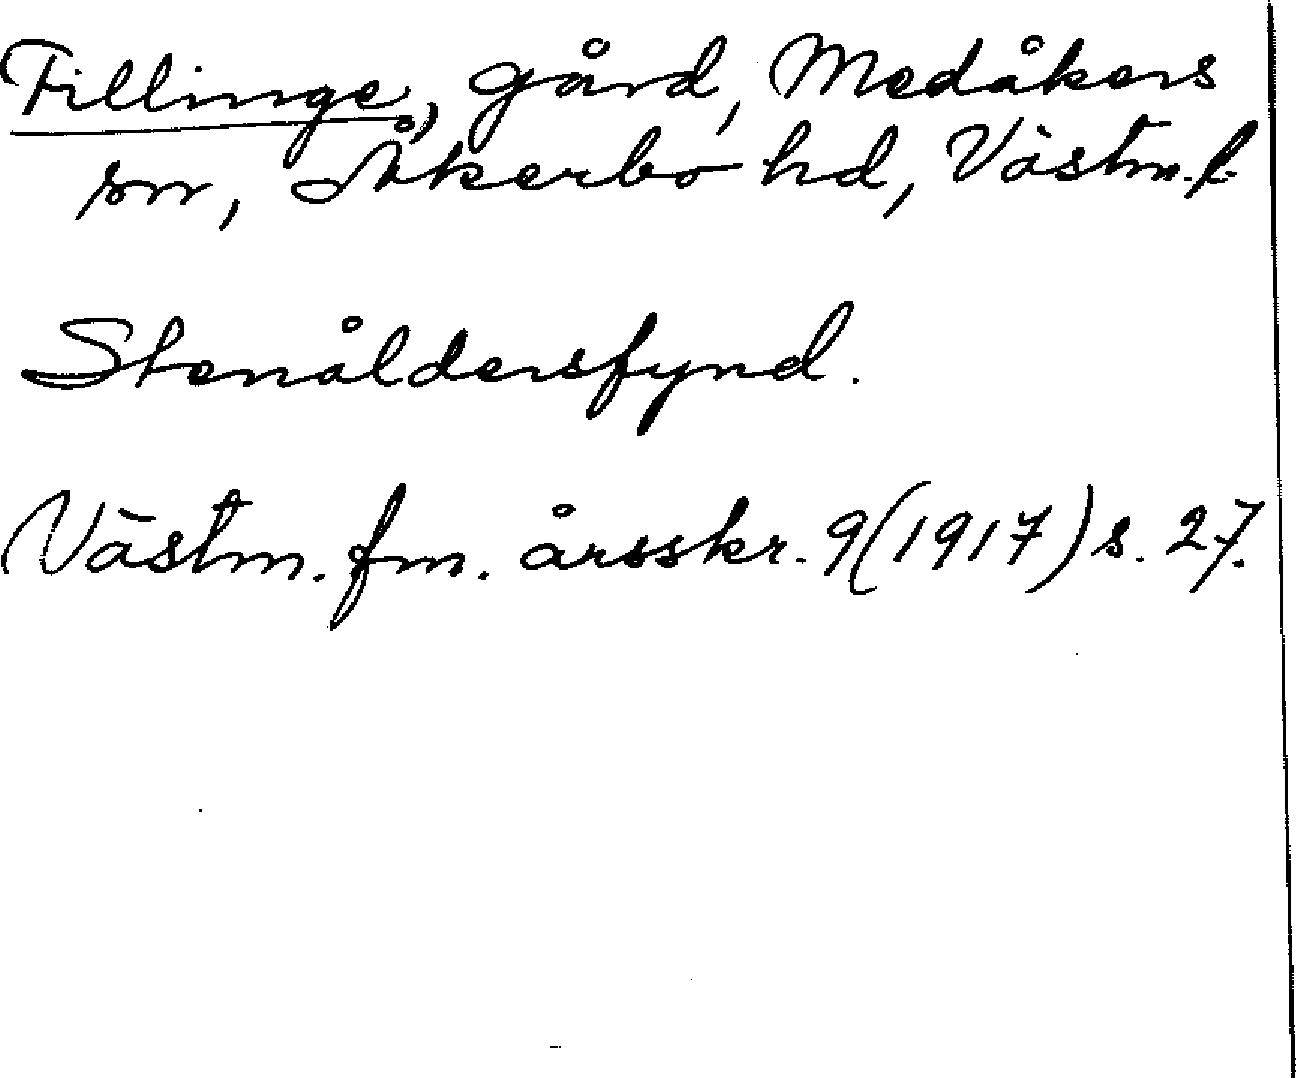 Fillinge, gård, Medåkers
sn, Åkerbo hd, Västm. l.
Stenåldersfynd.
Västm. fm. årsskr. 9(1917) s. 27.